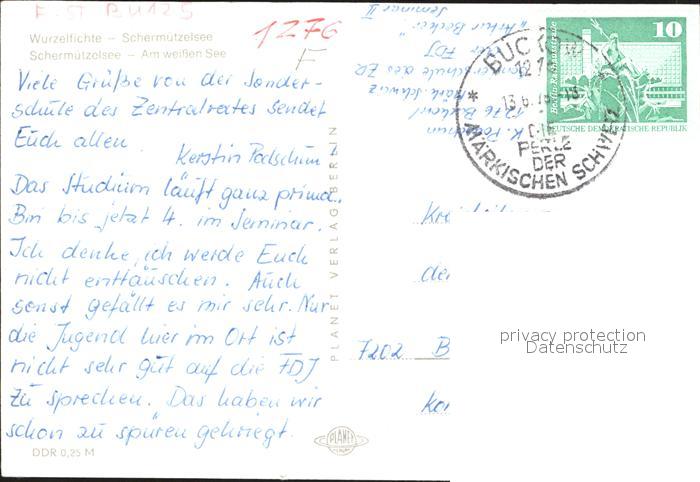 F. ST BU125
1276
F
Wurzelfichte – Schermützelsee
Schermützelsee – Am weißen See
Viele Grüße von der Sonder-
schule des Zentralrates sendet
Euch allen
Kerstin Podschun
Das Studium läuft ganz prima.
Bin bis jetzt 4. im Seminar.
Ich denke, ich werde Euch
nicht enttäuschen. Auch
sonst gefällt es mir sehr. Nur
die Jugend hier im Ort ist
nicht sehr gut auf die FDJ
zu sprechen. Das haben wir
schon zu spüren gekriegt.
DDR 0,25 M
PLANET VERLAG BERLIN
PLANET
K. Podschun
1276 Buckow
Märk. Schweiz
Sonderschule des ZR
der FDJ
"Artur Becker"
Seminar II
BUCKOW
DIE
PERLE
DER
MÄRKISCHEN SCHWEIZ
10
Berlin-Rathausstraße
DEUTSCHE DEMOKRATISCHE REPUBLIK
der
7202 B
privacy protection
Datenschutz